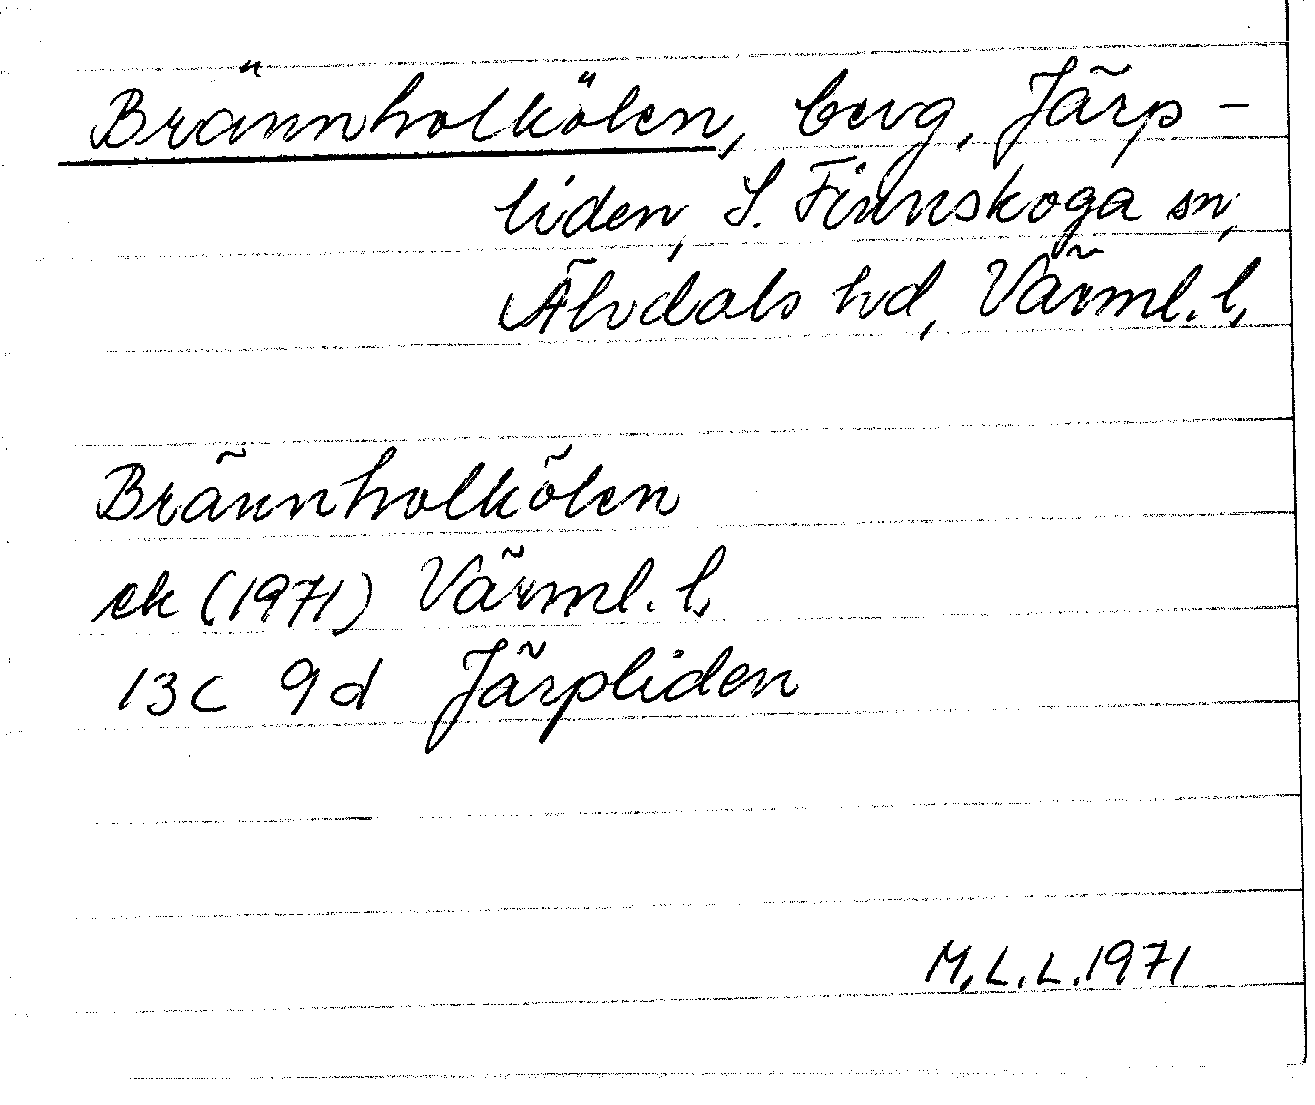 Brännholkölen, berg, Järp-
liden, S. Finnskoga sn,
Älvdals hd, Värml. l.
Brännholkölen
ek (1971) Värml. l.
13C 9d Järpliden
M.L.L. 1971